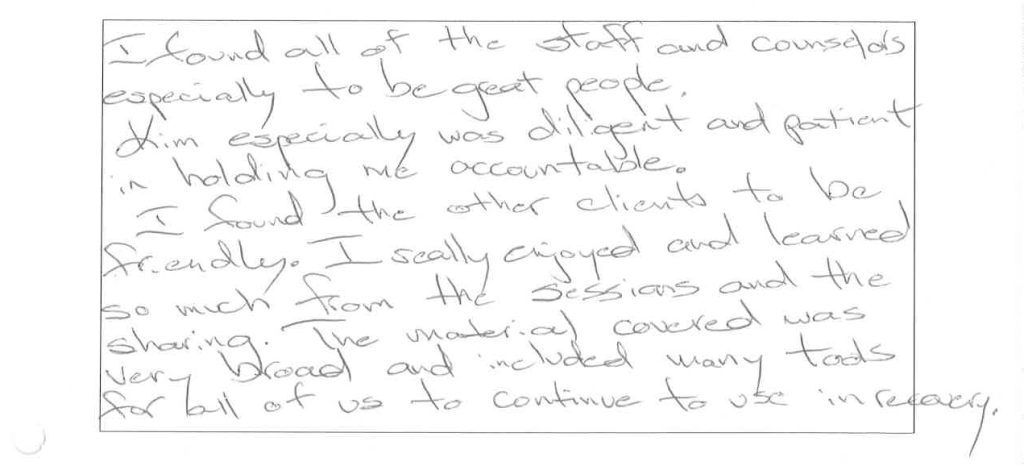 I found all of the staff and counselors
especially to be great people.
Kim especially was diligent and patient
in holding me accountable.
I found the other clients to be
friendly. I really enjoyed and learned
so much from the sessions and the
sharing. The material covered was
very broad and included many tools
for all of us to continue to use in recovery.